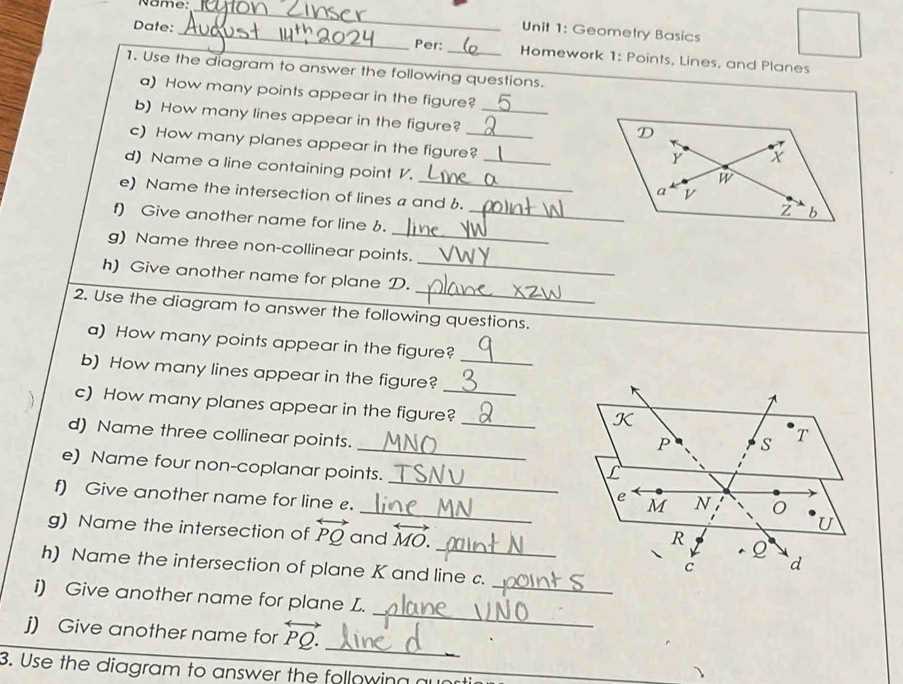 Name: Leyton Zinser
Unit 1: Geometry Basics
Date: August 14th 2024 Per: 6
Homework 1: Points, Lines, and Planes
1. Use the diagram to answer the following questions.
a) How many points appear in the figure? 5
b) How many lines appear in the figure? 2
c) How many planes appear in the figure? 1
d) Name a line containing point V. Line a
e) Name the intersection of lines a and b. point W
f) Give another name for line b. line YW
g) Name three non-collinear points. VWY
h) Give another name for plane D. plane XZW
D
Y X
W
a V
Z b
2. Use the diagram to answer the following questions.
a) How many points appear in the figure? 9
b) How many lines appear in the figure? 3
c) How many planes appear in the figure? 2
d) Name three collinear points. MNO
e) Name four non-coplanar points. TSNU
f) Give another name for line e. line MN
g) Name the intersection of PQ and MO. point N
h) Name the intersection of plane K and line c. point S
i) Give another name for plane L. plane UNO
j) Give another name for PQ. line d
K
P S T
L
e M N O
U
R Q
c d
3. Use the diagram to answer the following